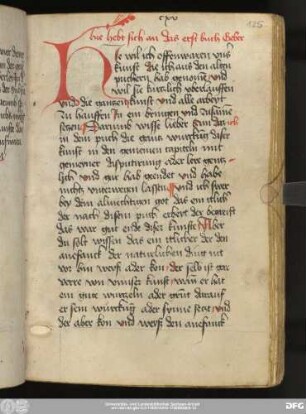 cxv
125
Hie hebt sich an das erst buch Geber
Hie wil ich offenwaren vns
kunst die ich aus den alten
puchern hab genomen vnd
wil sie kurtzlich vorlauffen
vnd die gantzen kunst vnd alle arbeit
zu hauffen In ein brengen vnd zusame
setzen Darumb wisse lieber sun das ich
in dem puch die gantz wurckung diser
kunst in den genomen capiteln mit
gemeiner disputirung oder ler gentz
lich vnd gar hab geendet vnd habe
nichts vnterwegen lassen vnd ich swere
bey dem almechtigen got das ein itlich
der nach disem puch erbeit der begreift
das war gut ende diser kunst Aber
du solt wissen das ein itlicher der den
anefanck der naturlichen ding nit
vor hin weiß oder kon der selb ist gar
verre von vnnser kunst wan er hat
ein gute wurtzeln oder grunt darauf
er sein wurckung oder synne setze vnd
der aber kon vnd weiß den anefanck